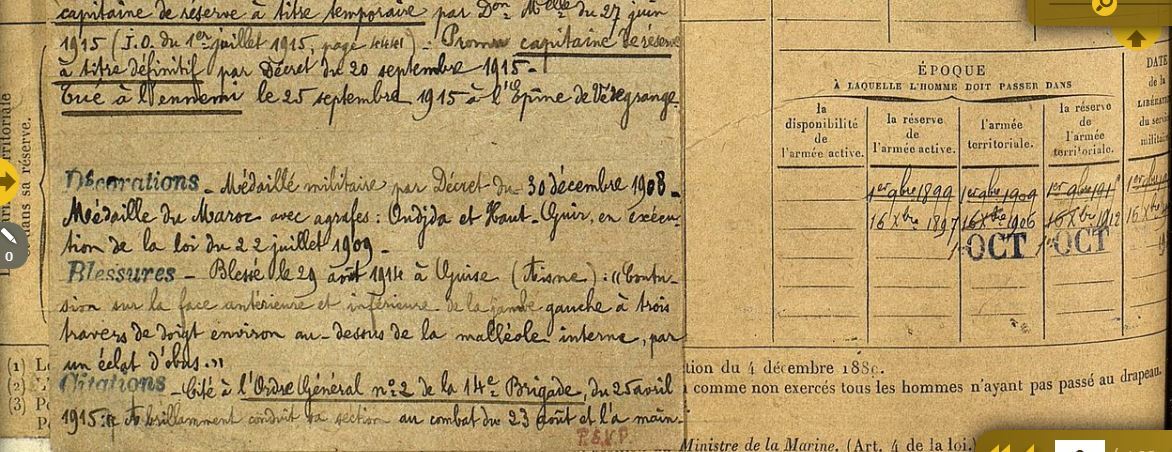 capitaine de réserve à titre temporaire par Don Melle du 27 juin
1915 (J.O. du 1er juillet 1915, page 4441). Promu capitaine de réserve
à titre définitif par Décret du 20 septembre 1915.-
Tué à l'ennemi le 25 septembre 1915 à l'Epine de Védegrange.
Décorations - Médaillé militaire par Décret du 30 décembre 1908.-
Médaille du Maroc avec agrafes: Oudjda et Haut-Guir, en exécu-
tion de la loi du 22 juillet 1909-
Blessures - Blessé le 29 août 1914 à Guise (Aisne): "Contu-
sion sur la face antérieure et inférieure de la jambe gauche à trois
travers de doigt environ au-dessus de la malléole interne, par
un éclat d'obus."
Citations - Cité à l'Ordre Général n° 2 de la 14e Brigade, du 25 avril
1915: "A brillamment conduit sa section au combat du 23 août et l'a main-
R.S.V.P.
territoriale
dans sa réserve.
0
(1) Le
(2)
(3) Po
P
ÉPOQUE
À LAQUELLE L'HOMME DOIT PASSER DANS
la disponibilité de l'armée active.
la réserve de l'armée active.
l'armée territoriale.
la réserve de l'armée territoriale.
DATE de la LIBÉRA du servi militai
1er 9bre 1899 1er 9bre 1909 1er 9bre 191
16 Xbre 1897 16 Xbre 1906 16 Xbre 1912 16 X
OCT OCT
tion du 4 décembre 188
comme non exercés tous les hommes n'ayant pas passé au drapeau.
Ministre de la Marine. (Art. 4 de la loi.)